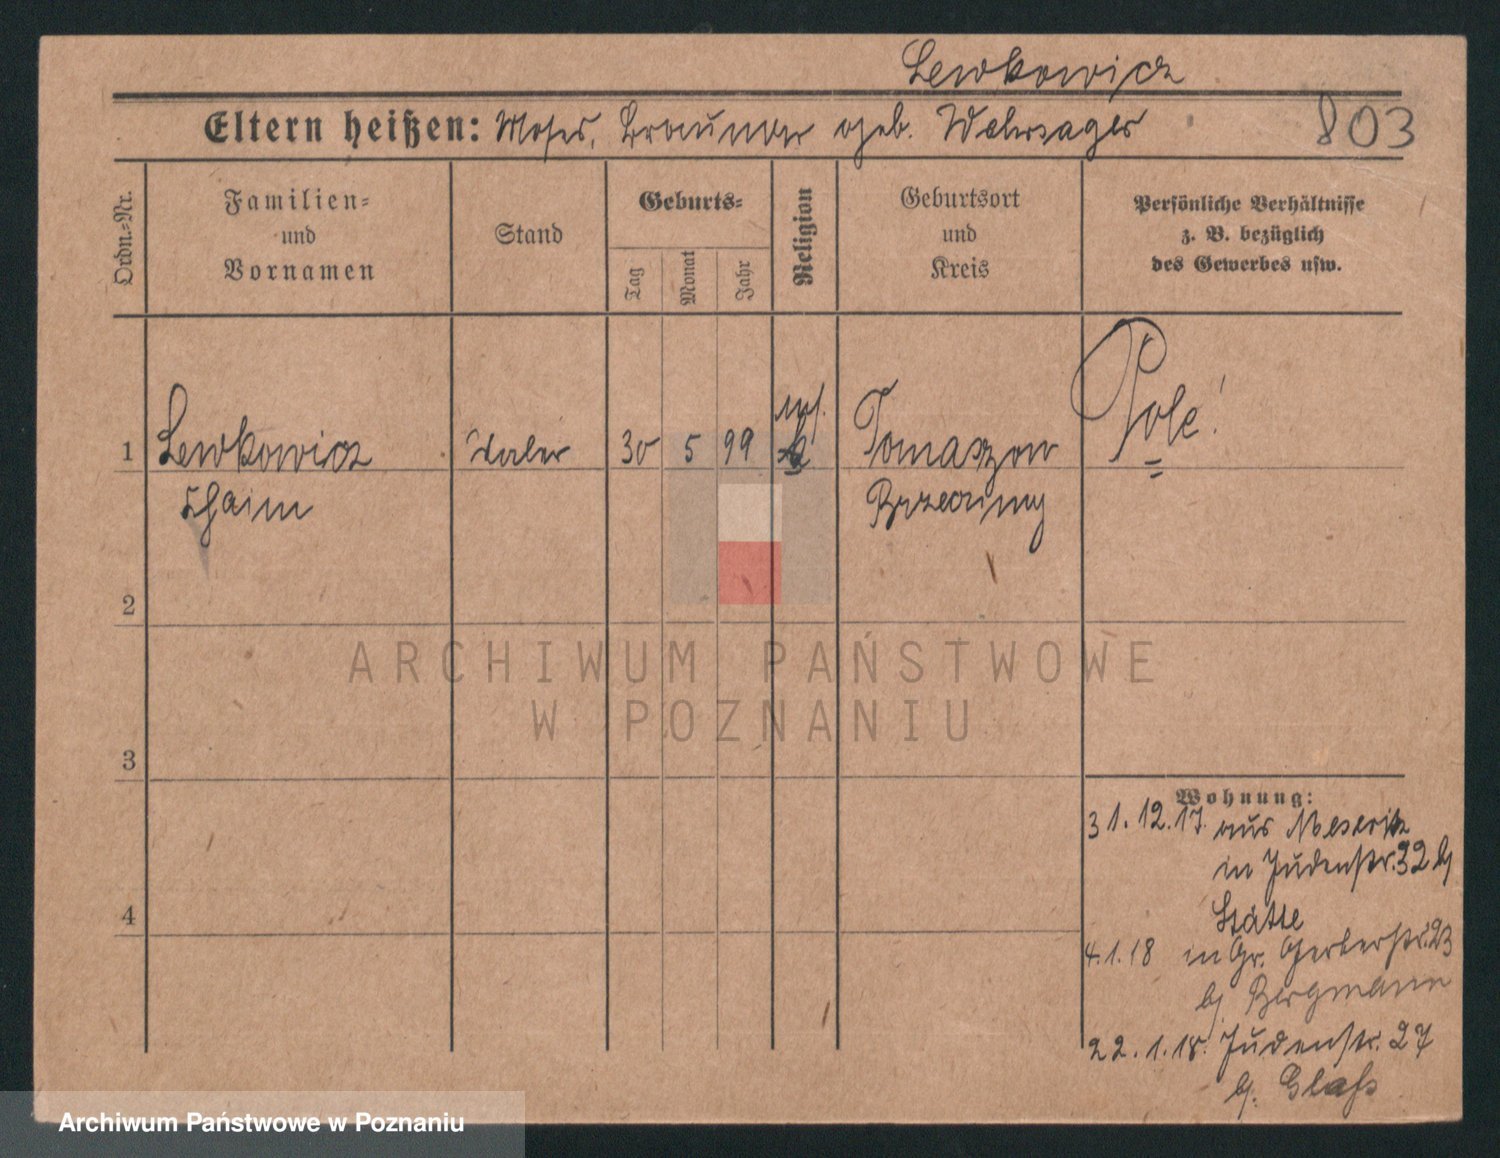 Lewkowicz
Eltern heißen: Moses, geb. Wahrsager
803
Ordn.-Nr.
Familien-
und
Vornamen
Stand
Geburts-
Tag
Monat
Jahr
Religion
Geburtsort
und
Kreis
Persönliche Verhältnisse
z. B. bezüglich
des Gewerbes usw.
1
Lewkowicz
Chaim
30
5
99
mos.
Tomaszow
Brzeziny
Pole!
2
3
4
Wohnung:
31.12.17. aus Meseritz
in Judenstr. 32 bj
Stätte
4.1.18 in Gr. Gerberstr. 23
bj Bergmann
22.1.18. Judenstr. 27
bj. Glaß
ARCHIWUM PAŃSTWOWE
W POZNANIU
Archiwum Państwowe w Poznaniu